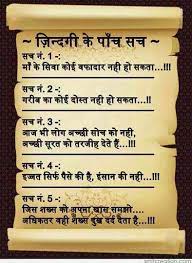 ~ ज़िन्दगी के पाँच सच ~
सच नं. 1 -:
माँ के सिवा कोई वफादार नही हो सकता...!!!
सच नं. 2 -:
गरीब का कोई दोस्त नही हो सकता...!!
सच नं. 3 -:
आज भी लोग अच्छी सोच को नही,
अच्छी सूरत को तरजीह देते हैं...!!!
सच नं. 4 -:
इज्जत सिर्फ पैसे की है, इंसान की नही...!!!
सच नं. 5 -:
जिस शख्स को अपना खास समझो....
अधिकतर वही शख्स दुख दर्द देता है...!!!